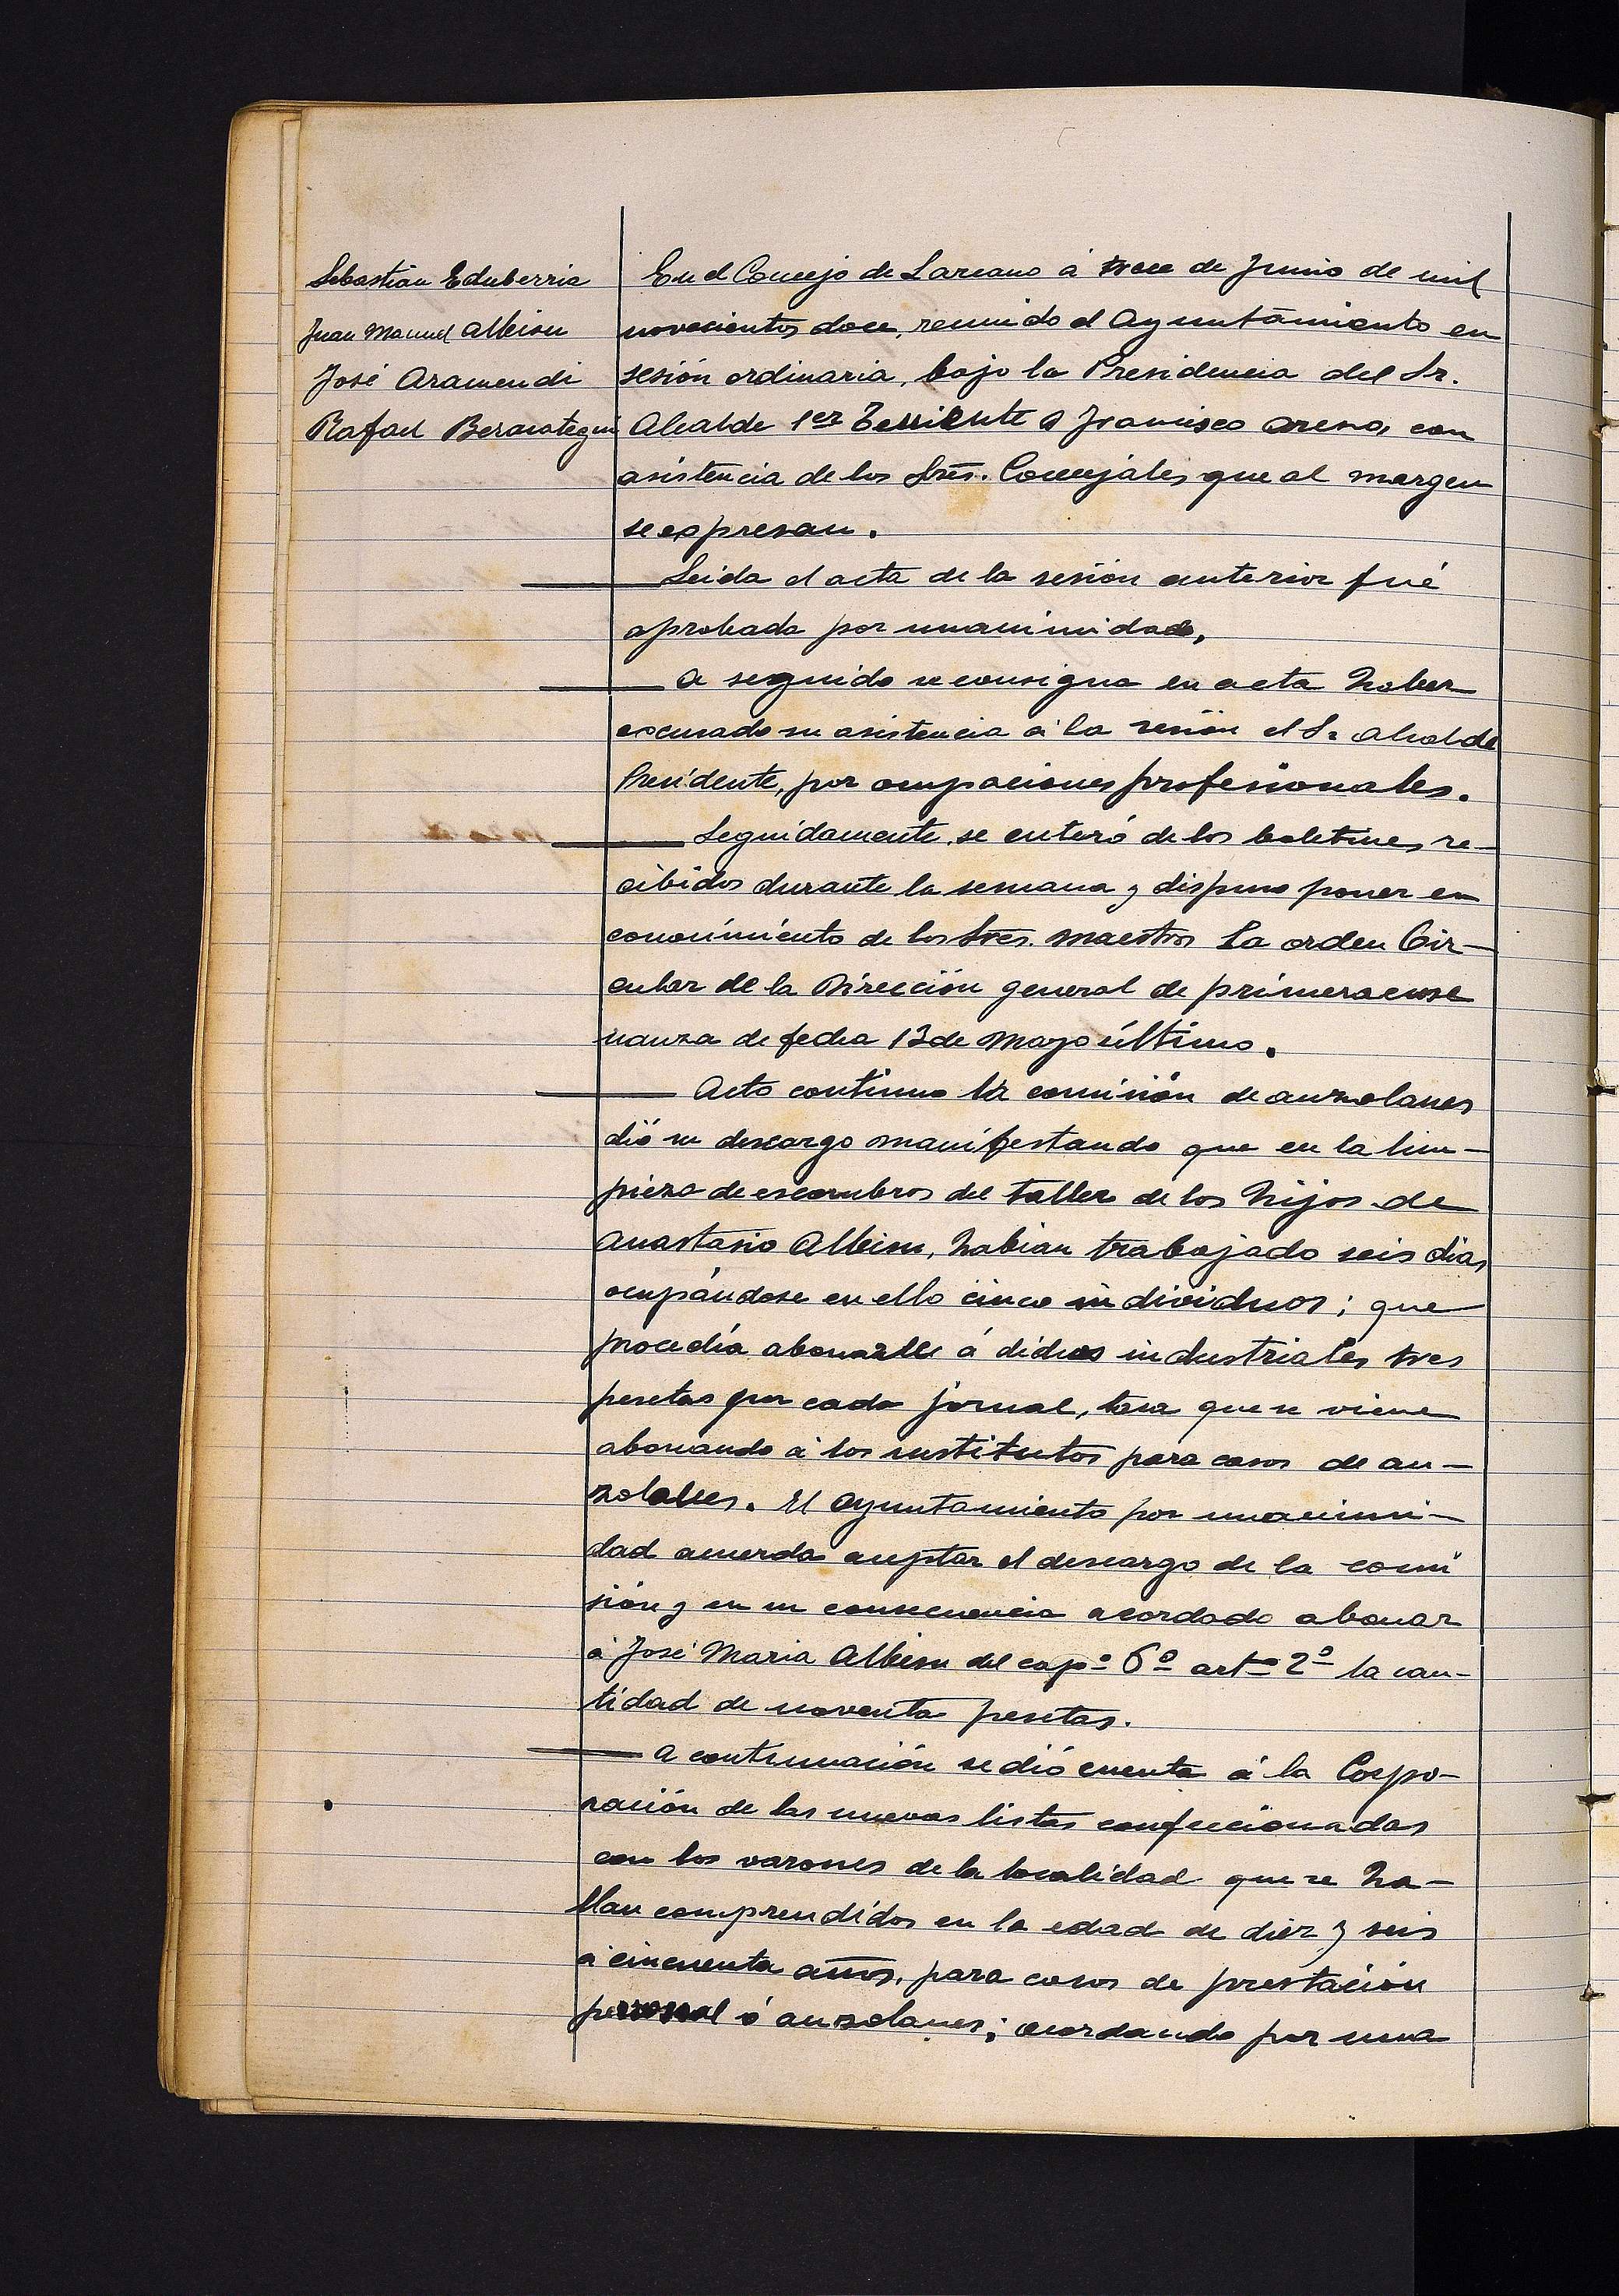 Sebastián Echeberria
Juan Manuel Albisu
José Aramendi
Rafael Berasategui
En el Concejo de Lazcano á trece de Junio de mil
novecientos doce, reunido el Ayuntamiento en
sesión ordinaria, bajo la Presidencia del Sr.
Alcalde 1er Teniente Francisco con
asistencia de los Sres. Concejales que al margen
se expresan.
Leida el acta de la sesión anterior fué
aprobada por unanimidad,
A seguido se consigna en acta haber
excusado su asistencia á la sesión el Sr Alcalde
Presidente, por ocupaciones profesionales.
Seguidamente, se enteró de los boletines re-
cibidos durante la semana y dispuso poner en
conocimiento de los Sres. Maestros la orden Cir-
cular de la Dirección general de primera ense
nanza de fecha 13 de Mayo último.
Acto continuo la comisión de auzolanes
dió su descargo manifestando que en la lim-
pieza de escombros del taller de los hijos de
Anastasio Albisu, habian trabajado seis dias
ocupándose en ello cinco individuos; que
procedía abonarle á dichos industriales tres
pesetas por cada jornal, tasa que se viene
abonando á los sustitutos para casos de au-
zolanes. El Ayuntamiento por unanimi-
dad acuerda aceptar el descargo de la comi
sión y en su consecuencia acordado abonar
á José Maria Albisu del capº 6º artº 2º la can-
tidad de noventa pesetas.
A continuación se dió cuenta á la Corpo-
ración de las nuevas listas confeccionadas
con los varones de la localidad que se ha-
llan comprendidos en la edad de diez y seis
á cincuenta años, para casos de prestación
personal ó auzolanes; acordando por una